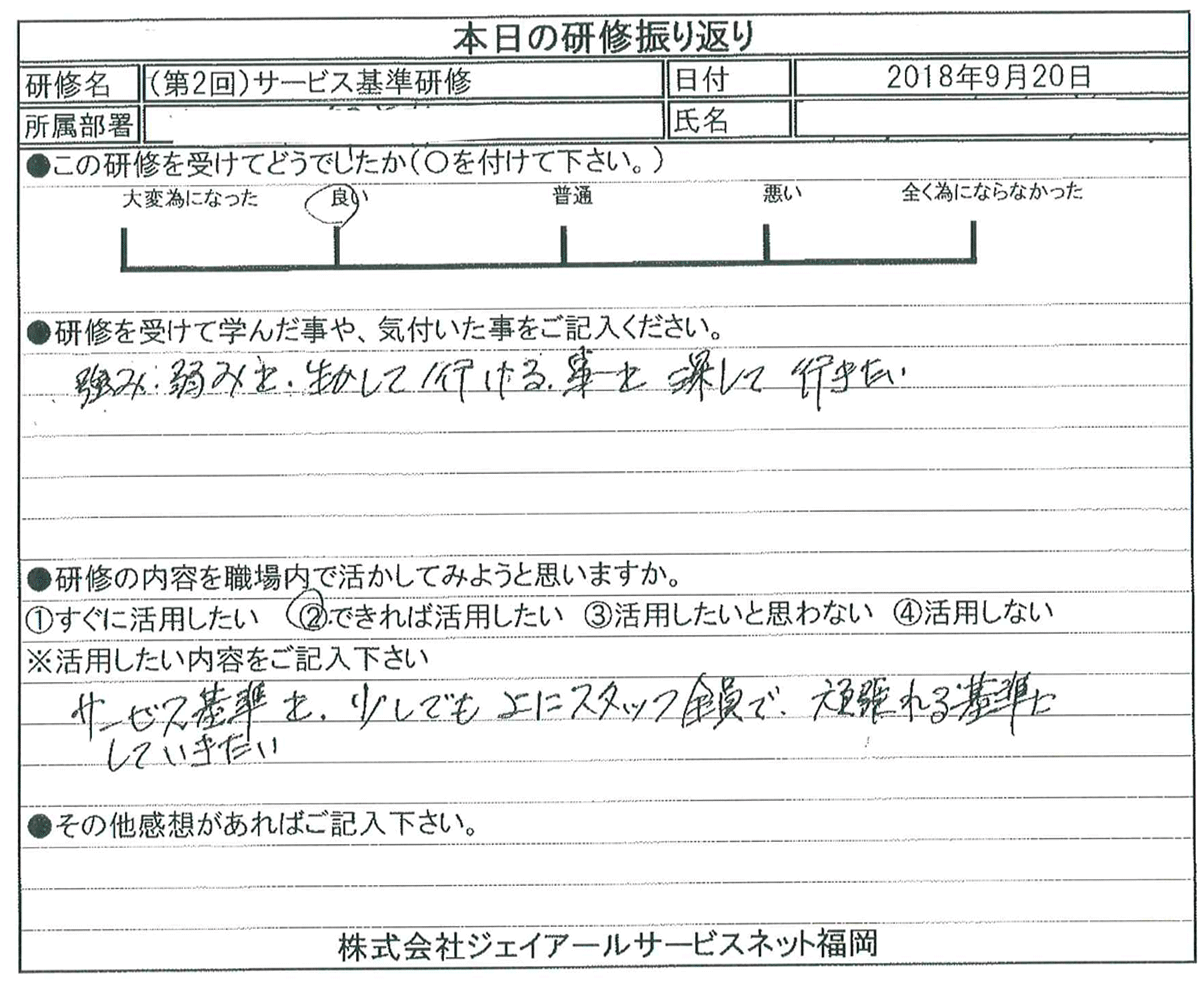 本日の研修振り返り
研修名 (第2回)サービス基準研修 日付 2018年9月20日
所属部署 氏名
●この研修を受けてどうでしたか(○を付けて下さい。)
大変為になった 良い 普通 悪い 全く為にならなかった
●研修を受けて学んだ事や、気付いた事をご記入ください。
強み.弱みを.生かして行ける.事を 探して 行きたい
●研修の内容を職場内で活かしてみようと思いますか。
①すぐに活用したい ②できれば活用したい ③活用したいと思わない ④活用しない
※活用したい内容をご記入下さい
サービス基準を.少しでも 上にスタッフ全員で.頑張れる基準に
していきたい
●その他感想があればご記入下さい。
株式会社ジェイアールサービスネット福岡